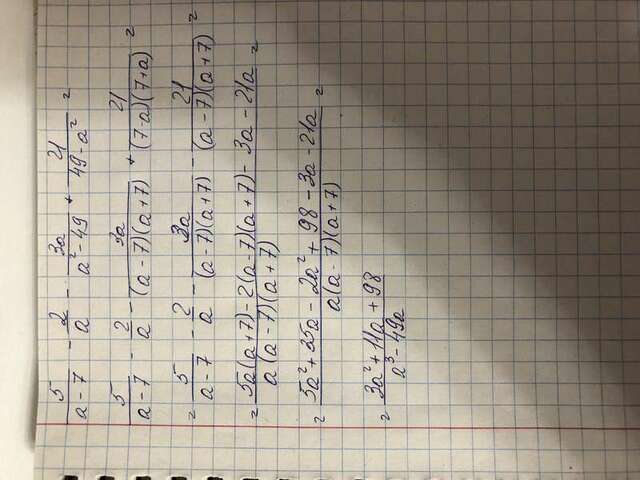 5/(a-7) - 2/a - 3a/(a²-49) + 21/(49-a²) =
5/(a-7) - 2/a - 3a/((a-7)(a+7)) + 21/((7-a)(7+a)) =
= 5/(a-7) - 2/a - 3a/((a-7)(a+7)) - 21/((a-7)(a+7)) =
= (5a(a+7)-2(a-7)(a+7)-3a-21a)/(a(a-7)(a+7)) =
= (5a²+35a-2a²+98-3a-21a)/(a(a-7)(a+7)) =
= (3a²+11a+98)/(a³-49a)